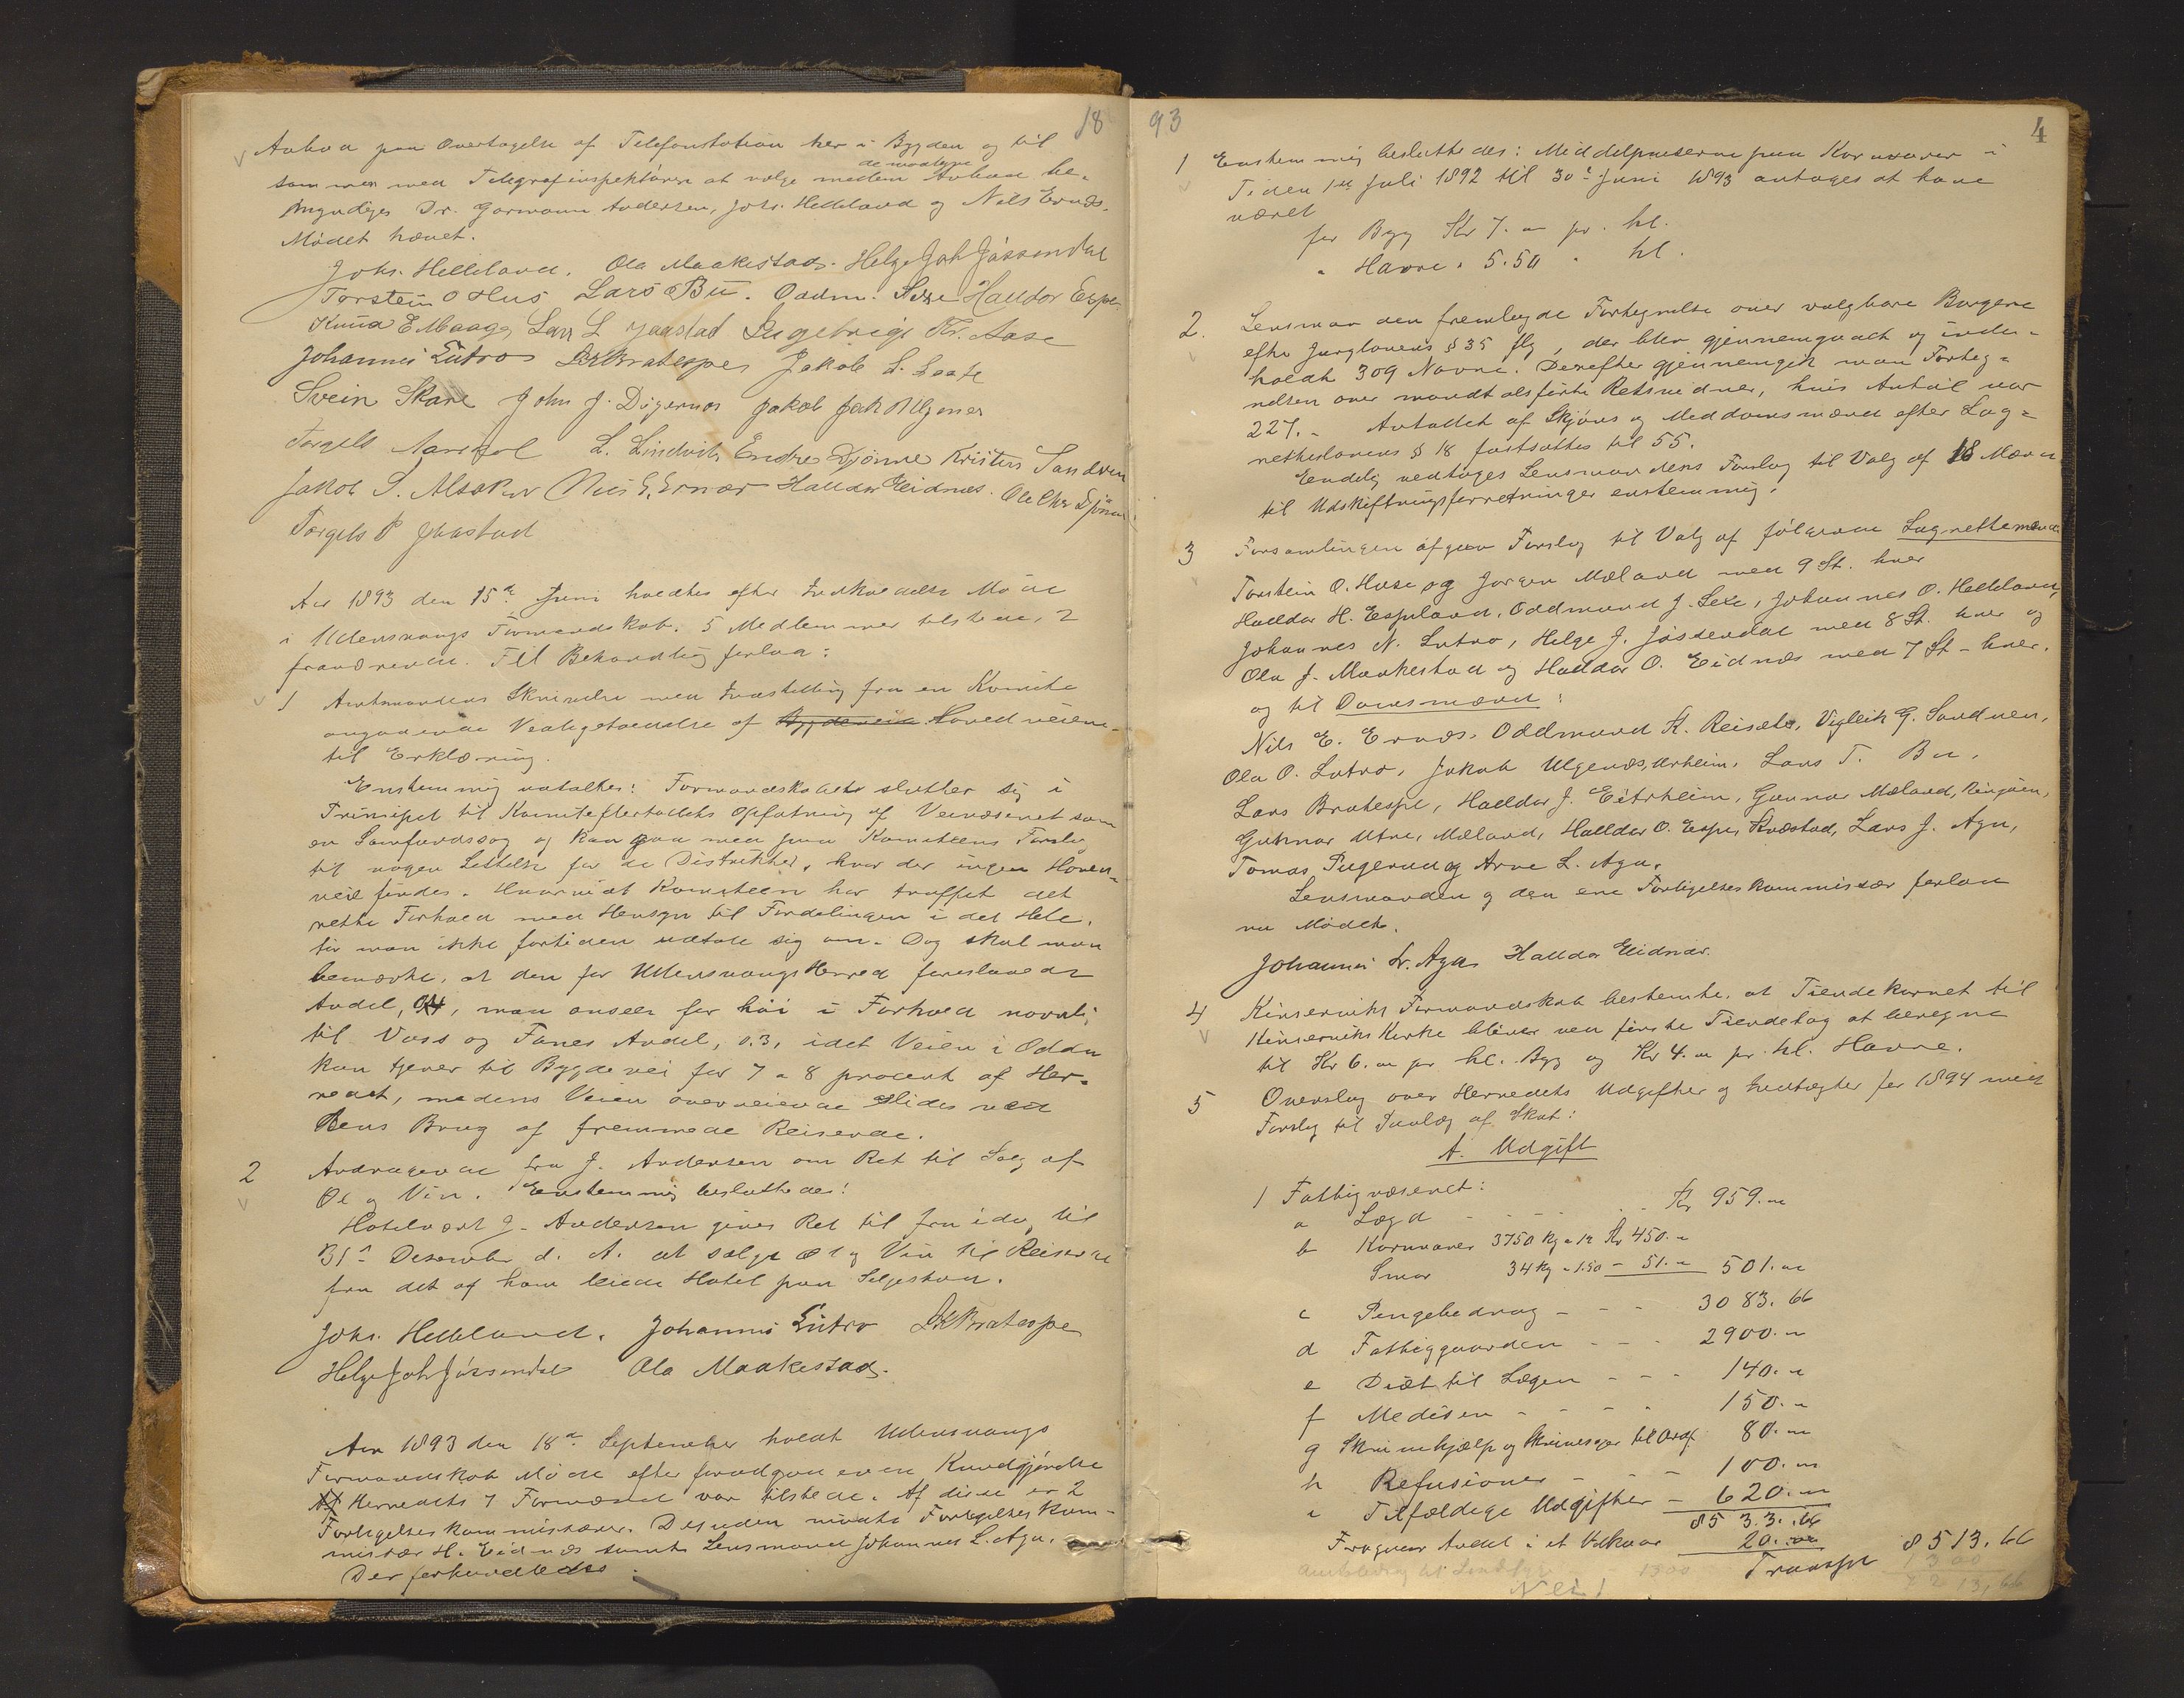 18
Anbud paa Overtagelse af Telefonstation her i Bygden og til
sammen med Telegrafinspektören at vælge mellem de modtagne Anbud be-
myndiges Dr. Garmann Andersen, Johs. Helleland og Nils Ernæs.
Mödet hævet.
Johs. Helleland. Ola Maakestad. Helge Joh Jösendal
Torstein O Hus Lars Bu. Oddm. Sexe Halldor Espe
Knud E Maage Lars L Jaastad Ingebrigt Kr. Aase
Johannes Lutro LKBratespe Jakob L.
Svein Skare John J. Digernes Jakob Jak Ulgenes
Torgels L. Lindvik Endre Djönne Kristen Sandven
Jakob S. Alsaker Nils E. Ernæs Halldor Eidnæs. Ola Chr Djönne
Torgels P Jaastad
Aar 1893 den 15de Juni holdtes efter Indkaldelse Möde
i Ullensvangs Formandskab. 5 Medlemmer tilstede, 2
fraværende. Til Behandling forlaa:
1 Amtmandens Skrivelse med Indstilling fra en Komite
angaaende Vedligeholdelse af Bygdeveie Hovedveiene
til Erklæring.
Enstemmig vedtoges: Formandskabet slutter sig i
Prinsipet til Komiteflertallets Opfatning af Veivæsenet som
en Samfundssag og kan gaa med paa Komiteens Forslag
til nogen Lettelse for de Distrikter, hvor der ingen Hoved-
veie findes. Hvorvidt Komiteen har truffet det
rette Forhold med Hensyn til Fordelingen i det Hele,
tör man ikke fortiden udtale sig om. Dog skal man
bemærke, at den for Ullensvangs Herred foreslaaede
Andel, 0.4, man anseer for höi i Forhold navnlig
til Voss og Fanes Andel, 0.3, idet Veien i Odda
kun tjener til Bygdevei for 7 a 8 procent af Her-
redet, medens Veien overveiende slides ved
dens Brug af fremmede Reisende.
2 Andragende fra J. Andersen om Ret til Salg af
Öl og Vin. Enstemmig besluttedes:
Hotelvært J. Andersen gives Ret til fra idag til
31te Desember d. A. at sælge Öl og Vin til Reisende
fra det af ham leiede Hotel paa Seljestad.
Johs. Helleland. Johannes Lutro LKBratespe
Helge Joh Jösendal Ola Maakestad.
Aar 1893 den 18de September holdt Ullensvangs
Formandskab Möde efter forudgaaende Kundgjörelse
Af Herredets 7 Formænd var tilstede. Af disse er 2
Forligelseskommissærer. Desuden mödte Forligelseskom-
missær H. Eidnæs samt Lensmand Johannes L. Aga.
Der forhandledes
93
4
1 Enstemmig besluttedes: Middelpriserne paa Kornvarer i
Tiden 1ste Juli 1892 til 30te Juni 1893 antages at have
været
for Byg Kr 7.00 pr. hl.
" Havre " 5.50 " hl.
2. Lensmanden fremlagde Fortegnelse over valgbare Borgere
efter Jurylovens § 35 flg, der blev gjennemgaaet og inde-
holdt 309 Navne. Derefter gjennemgik man Forteg-
nelsen over mandtalsförte Retsvidner, hvis Antal var
227. - Antallet af Skjöns og Meddomsmænd efter Lag-
retteslovens § 18 fastsattes til 55.
Endelig vedtoges Lensmandens Forslag til Valg af 18 Mænd
til Udskiftningsforretninger enstemmig.
3 Forsamlingen afgav Forslag til Valg af fölgende Lagrettemænd
Torstein O. Huse og Jörgen Mæland med 9 St. hver
Halldor H. Espeland, Oddmund J. Sexe, Johannes O. Helleland,
Johannes N. Lutro, Helge J. Jösendal med 8 St. hver og
Ola J. Maakestad og Halldor O. Eidnæs med 7 St - hver.
og til Domsmænd:
Nils E. Ernæs, Oddmund K. Reisæte, Vigleik G. Sandven,
Ola O. Lutro, Jakob Ulgenæs, Urheim, Lars T. Bu,
Lars Bratespe, Halldor J. Eitrheim, Gunnar Mæland, Ringöen,
Gunnar Utne, Mæland, Halldor O. Espe, Kvæstad, Lars J. Aga,
Tomas Digernæs og Arne L. Aga.
Lensmanden og den ene Forligelseskommissær forlod
nu Mödet.
Johannes L. Aga Halldor Eidnæs.
4 Kinserviks Formandskab bestemte, at Tiendekornet til
Kinserviks Kirke bliver ved förste Tiendetag at beregne
til Kr 6.00 pr hl. Byg og Kr 4.00 pr. hl. Havre.
5 Overslag over Herredets Udgifter og Indtægter for 1894 med
Forslag til Paalæg af Skat:
A. Udgift
1 Fattigvæsenet:
a Lægd - - - - Kr 959.00
b Kornvarer 3750 kg a 12 Kr 450.00
Smör 34 kg a 1.50 - 51.00 501.00
c Pengebedrag - - - 3083.66
d Fattiggaarden - - - 2900.00
e Diæt til Lægen - - - 140.00
f Medisin - - - - 150.00
g Skrivehjælp og Skrivesager til Ordf. 80.00
h Refusioner - - - 100.00
i Tilfældige Udgifter - 620.00
8533.66
Fragaar Andel i et 20.00 8513.66
Amtsbidrag til 1300 Transp 1300
Nei!
7213,66